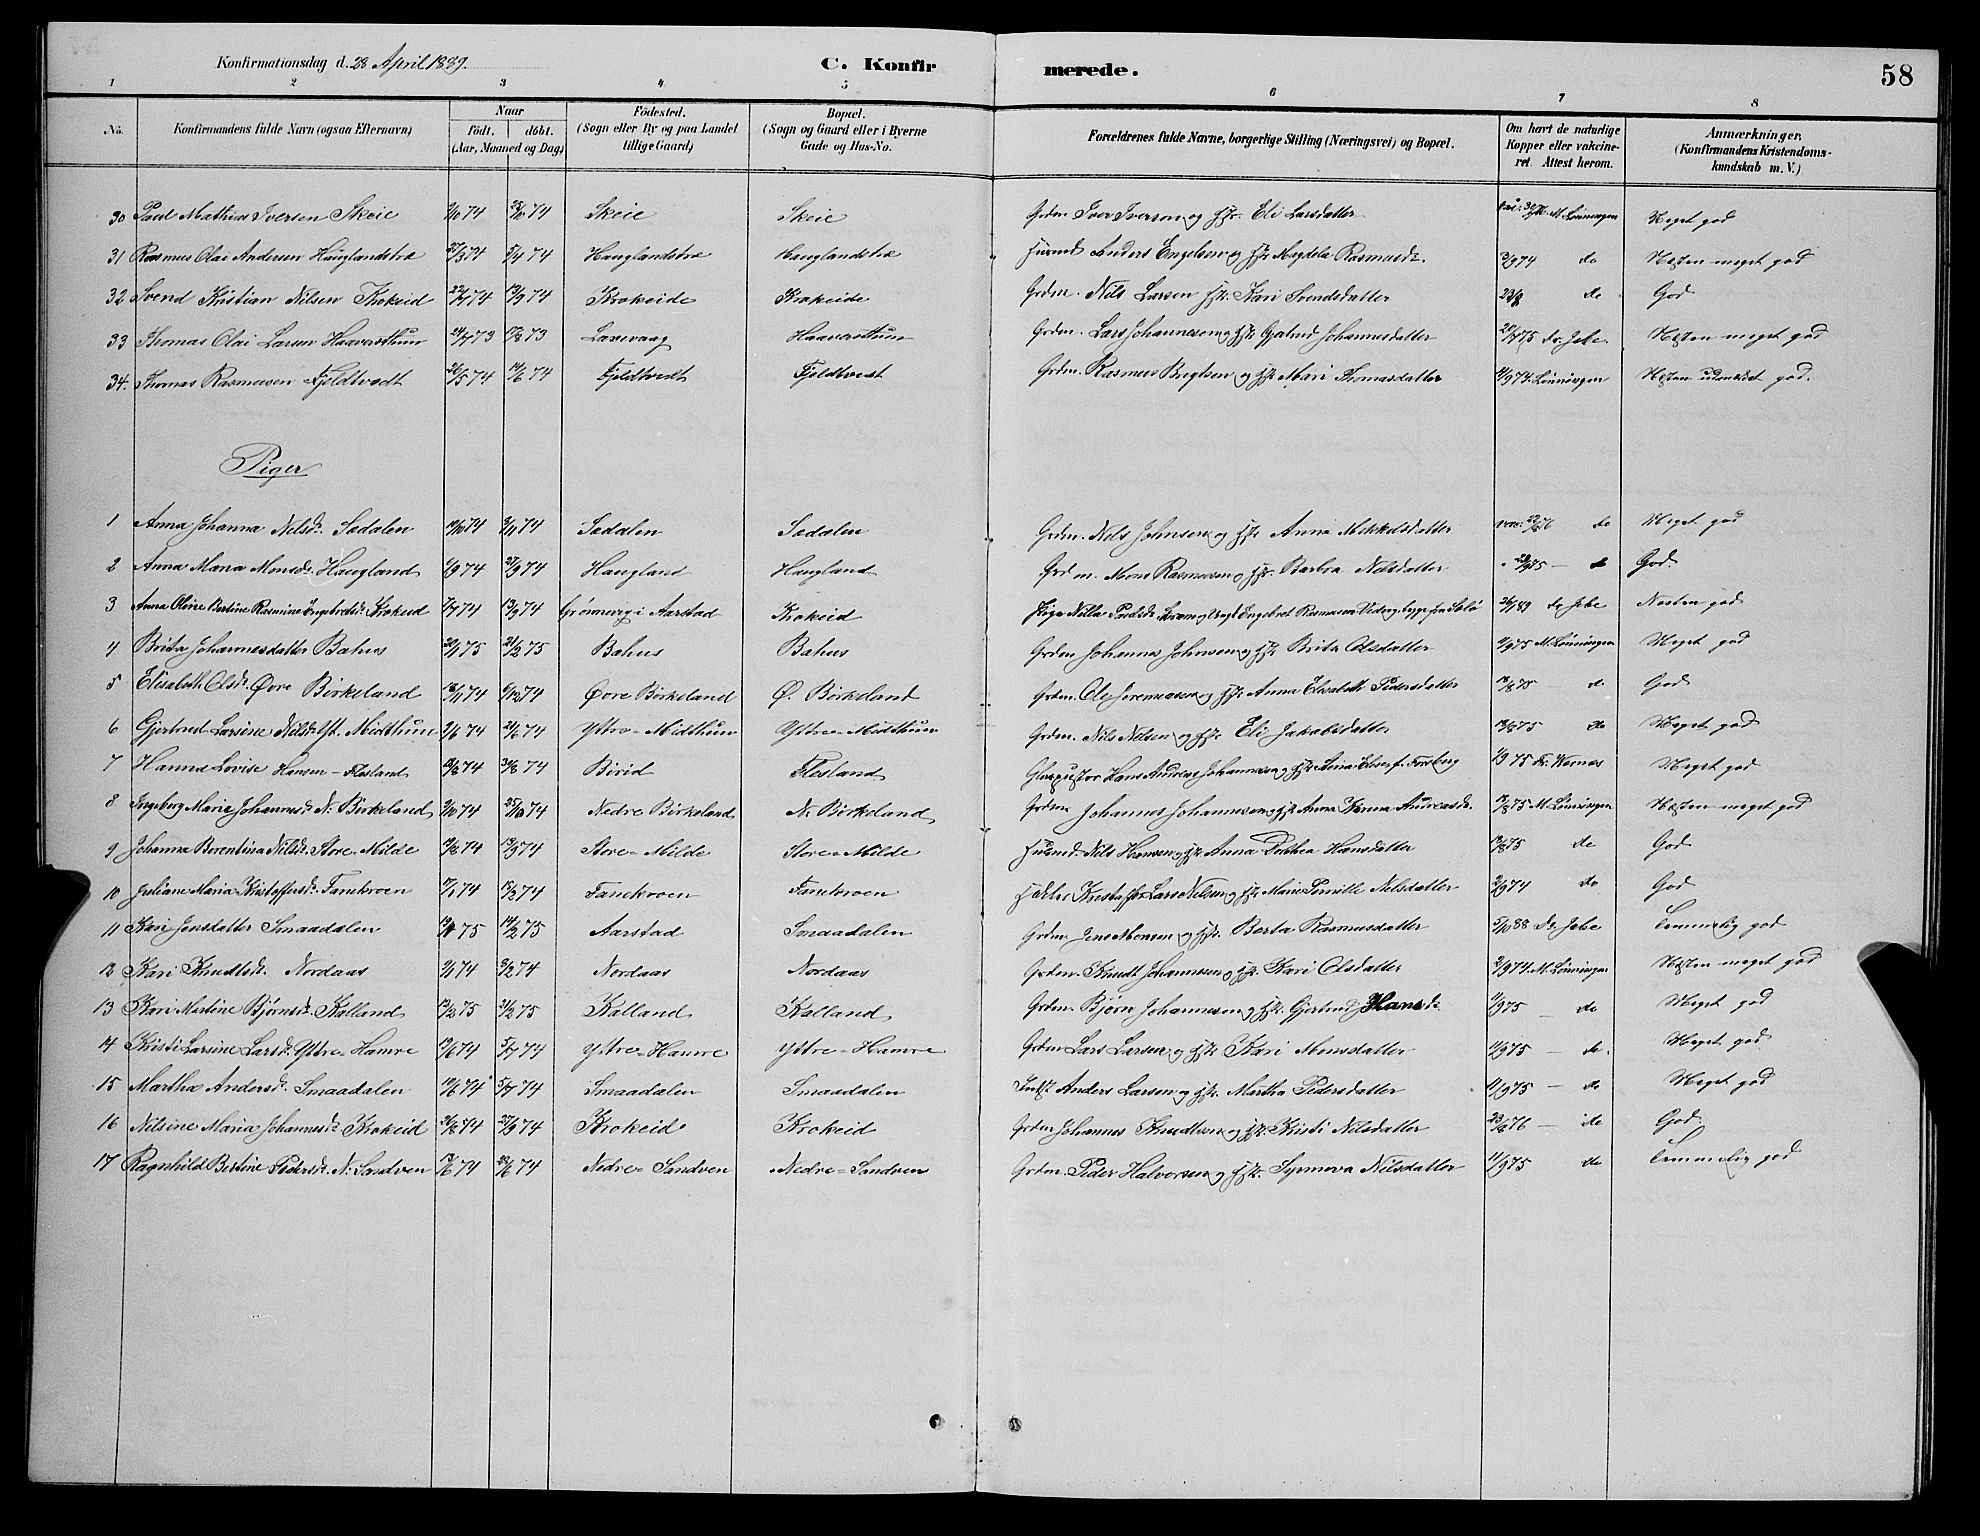 Konfirmationsdag d. 28 April 1889.
C. Konfirmerede.
58
1 2 3 4 5 6 7 8
No.
Konfirmandens fulde Navn (ogsaa Efternavn)
Naar
födt. döbt.
(Aar, Maaned og Dag)
Födested.
(Sogn eller By og paa Landet
tillige Gaard)
Bopæl.
(Sogn og Gaard eller i Byerne
Gade og Hus-No.
Forældrenes fulde Navne, borgerlige Stilling (Næringsvei) og Bopæl.
Om havt de naturlige
Kopper eller vakcine-
ret. Attest herom.
Anmærkninger.
(Konfirmandens Kristendoms-
kundskab m. V.)
30 Paul Mathias Iversen Skeie 74 74 Skeie Skeie Grdm. Iver Iversen og Hstr. Eli Larsdatter M. Lönningen Meget god
31 Rasmus Olai Andersen Hauglandstræ 27/3 74 5/4 74 Hauglandstræ Hauglandstræ Husmd Anders Engelsen og Hstr Magdela Rasmusdr. 74 do Næsten meget god
32 Svend Kristian Nilsen Krokeid 74 13/9 74 Krokeide Krokeide Grdm. Nils Larsen Hstr. Kari Svendsdatter do God
33 Thomas Olai Larsen Haavardthun 73 17/8 73 Laxevaag Haavardthun Grdm. Lars Johannesen og Hstr Gjertrud Johannesdatter 75 Dr. Jebe Næsten meget god
34. Thomas Rasmusen Fjeldtvedt 26/5 74 14/6 74 Fjeldtvedt Fjeldtvedt Grdm. Rasmus Brigtsen og Hstr Mari Thomasdatter 74. Lönningen Næsten udmærket god.
Piger
1 Anna Johanna Nelsdr. Sædalen 74 74 Sædalen Sædalen Grdm. Nels Johnsen og Hstr Anna Mikkelsdatter do Meget god
2 Anna Maria Monsdr. Haugland 74 27/9 74 Haugland Haugland Grdm. Mons Rasmusen og Hstr. Barbra Nilsdatter 75 — do God.
3 Anna Oline Bertine Rasmine Engebretsdr. Krokeid 74 13/9 74 Grønneveg i Aarstad Krokeid Pige Nilla og Engebret Rasmusen 89 Dr Jebe Næsten god
4 Brita Johannesdatter Bahus 75 21/2 75 Bahus Bahus Grdm Johannes Johnsen og Hstr Brita Olsdatter 75 M. Lönningen Meget god
5 Elisabeth Olsdr. Øvre Birkeland 74 6/12 74 Øvre Birkeland Ø. Birkeland Grdm. Ole Jeremiasen og Hstr Anna Elisabeth Pedersdatter 75 — do God
6 Gjertrud Larsine Nilsdr. Yt. Midthun 2/6 74 21/6 74 Ytre-Midthun Yttre-Midthun Grdm. Nils Nilsen og Hstr Eli Jakobsdatter 75 do Meget god
7 Hanna Lovise Hansen – Flesland 74 74 Birid Flesland Hans Andreas Johannesen og Hstr Anna Elise f. Forsberg 75 Meget god
8 Ingeborg Maria Johannesdr. N. Birkeland 74 25/10 74 Nedre Birkeland N. Birkeland Grdm Johannes Johannesen og Hstr Anna Andreasdr. 75 M. Lönningen Næsten meget god
9 Johanna Berentina Nilsdr. Store-Milde 74 13/9 74 Store-Milde Store-Milde Husmd. Nils Hansen og Hstr. Anna Dorthea Hansdatter 75 do God
10 Juliane Maria Kristoffersdr. Fanekroen 74 15/2 74 Fanekroen Fanekroen Kristoffer Lars Nilsen og Hstr Marie Pernille Nilsdatter 74 do God
11 Kari Jensdatter Smaadalen 75 14/2 75 Aarstad Smaadalen Grdm. Jens Monsen og Hstr. Berta Rasmusdatter 5/10 88 Dr Jebe Temmelig god
12 Kari Knudtsdr. Nordaas 74 8/2 74 Nordaas Nordaas Grdm. Knudt Johannesen og Hstr Kari Olsdatter 74. M. Lönningen Næsten meget god
13 Kari Martine Bjørnsdr. Kalland 75 21/2 75 Kalland Kalland Grdm. Bjørn Johannesen og Hstr. Gjertrud Hansdr. 11/9 75 — do Meget god
14 Kristi Larsine Larsdr. Yttre-Hamre 74 5/7 74 Yttre-Hamre Yttre-Hamre Grdm Lars Larsen og Hstr Kari Monsdatter 11/9 75 — do. Meget god
15 Martha Andersdr. Smaadalen 74 5/7 74 Smaadalen Smaadalen Anders Larsen og Hstr. Martha Pedersdatter 11/9 75 — do Meget god
16 Nilsine Maria Johannesdr. Krokeid 74 27/9 74 Krokeid Krokeid Grdm Johannes Knudtsen og Hstr Kristi Nilsdatter 76 — do God.
17 Ragnhild Bertine Pedersdr. N. Sandven 74 74 Nedre-Sandven Nedre-Sandven Grdm. Peder Halvorsen og Hstr. Synneva Nilsdatter 11/9 75 do Temmelig god